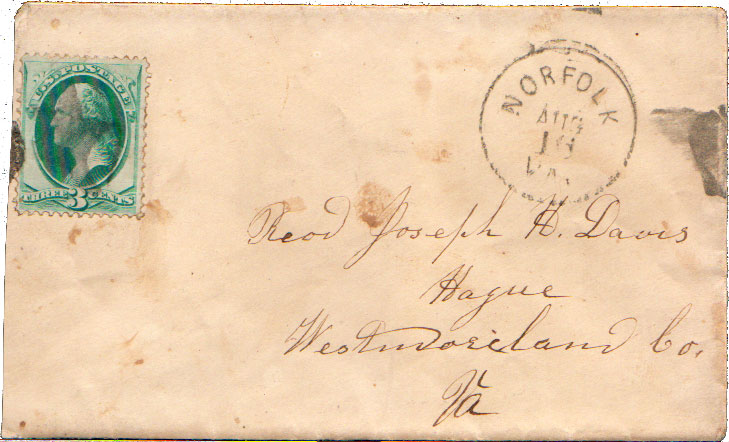 U.S. POSTAGE
THREE 3 CENTS
NORFOLK
AUG
VA.
Revd Joseph H. Davis
Hague
Westmoreland Co.
Va